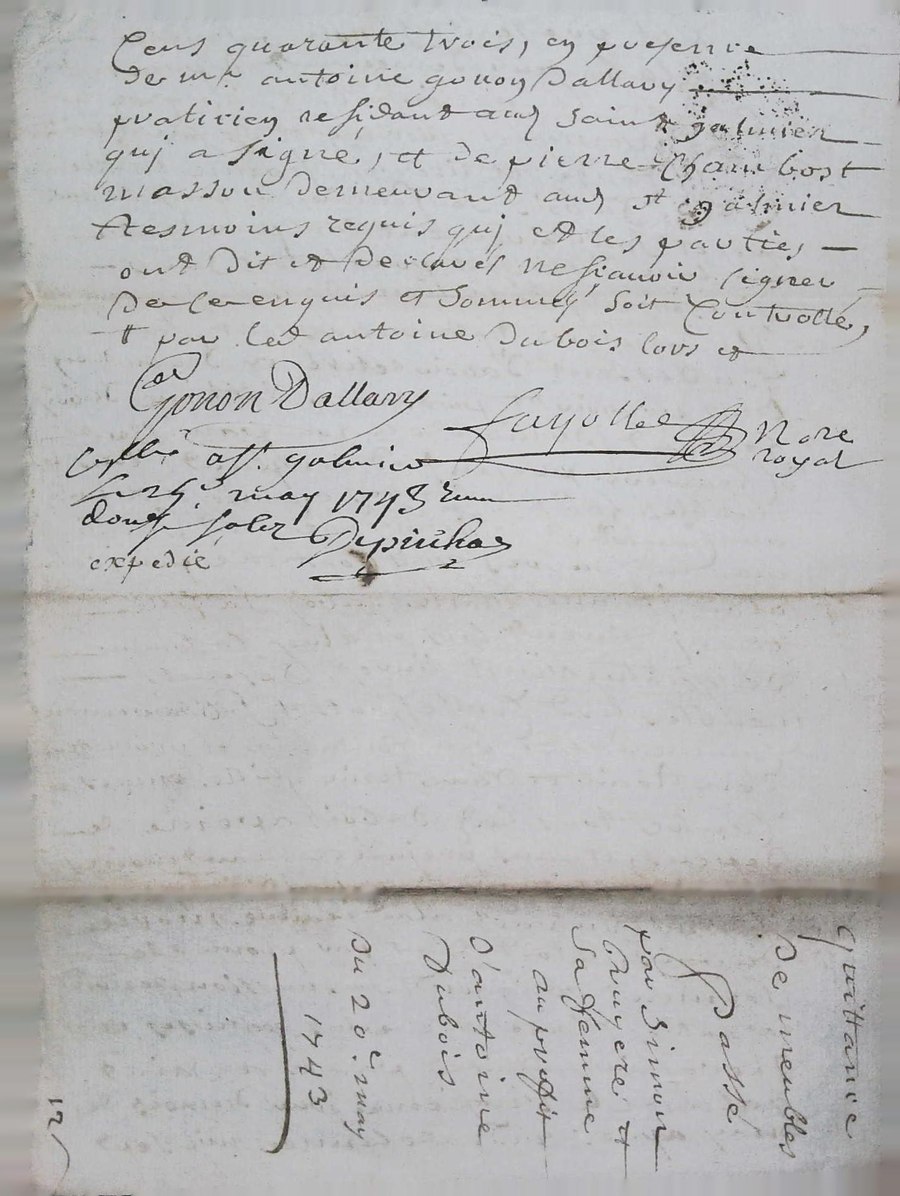 Cens quarante trois, en presence
de mr. antoine gonon Dallary
praticien residant aud saint galmier
qui a signe, et de pierre Chambost
masson demeurant aud st galmier
tesmoins requis qui et les parties
ont dit et declarés ne sçavoir signer
de ce enquis et sommés, soit Controllé,
par led antoine dubois lors et
Gonon Dallary
fayolle Nore
royal
a st. galmier
may 1743
douze solz Depinhac
expedié
quittance
De meubles
Passé
par Simon
Ruyere et
sa femme
au proffit
d'antoine
Dubois.
Du 20e. may
1743
12